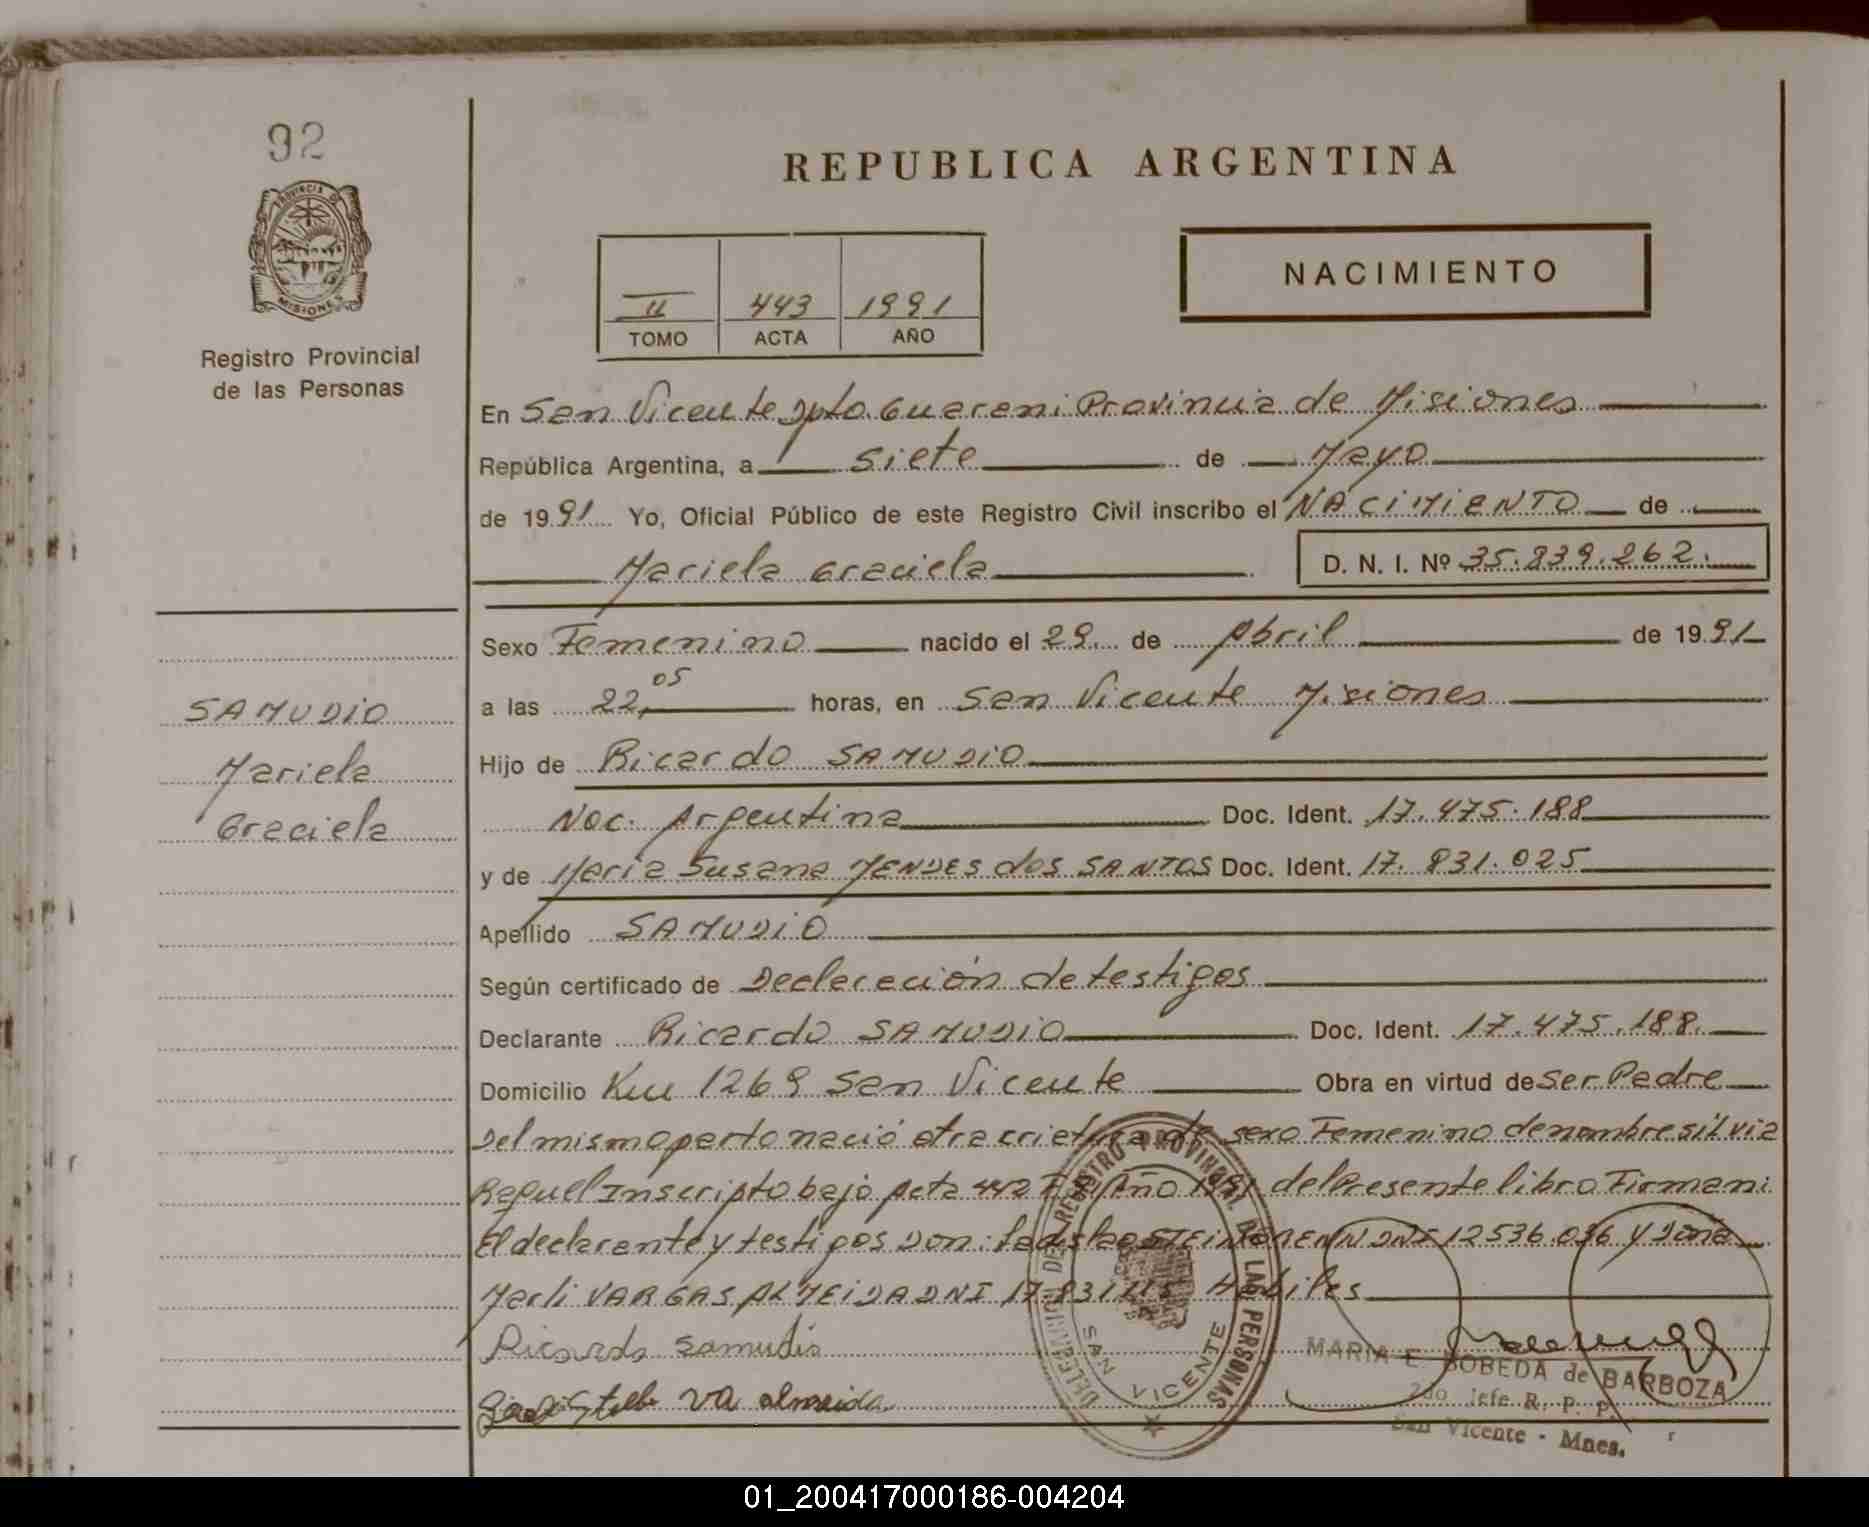 92
PROVINCIA DE
MISIONES
Registro Provincial
de las Personas
REPUBLICA ARGENTINA
NACIMIENTO
II 443 1991
TOMO ACTA AÑO
En San Vicente Dpto. Guarani Provincia de Misiones
República Argentina, a siete de Mayo
de 1991 Yo, Oficial Público de este Registro Civil inscribo el NACIMIENTO de
Mariela Graciela D. N. I. Nº 35.839.262.
Sexo Femenino nacido el 29 de Abril de 1991
a las 22,05 horas, en San Vicente Misiones
Hijo de Ricardo SAMUDIO
Nac. Argentina Doc. Ident. 17.475.188
y de Maria Susana MENDES dos SANTOS Doc. Ident. 17.831.025
Apellido SAMUDIO
Según certificado de Declaración de testigos
Declarante Ricardo SAMUDIO Doc. Ident. 17.475.188
Domicilio Km 1269 San Vicente Obra en virtud de Ser Padre
Del mismo parto nació otra criatura de sexo Femenino de nombre Silvia
Raquel Inscripto bajo Acta 442 Año 1991 del Presente libro Firman:
El declarante y testigos Don: Ladislao DNI 12536.036 y Doña
Marli VARGAS ALMEIDA DNI 17.831.115 Habiles
Ricardo Samudio
VA almeida
SAMUDIO
Mariela
Graciela
DELEGACION DEL REGISTRO PROVINCIAL DE LAS PERSONAS
SAN VICENTE
MARIA E. BOBEDA de BARBOZA
2do. Jefe R. P. P.
San Vicente - Mnes.
01_200417000186-004204